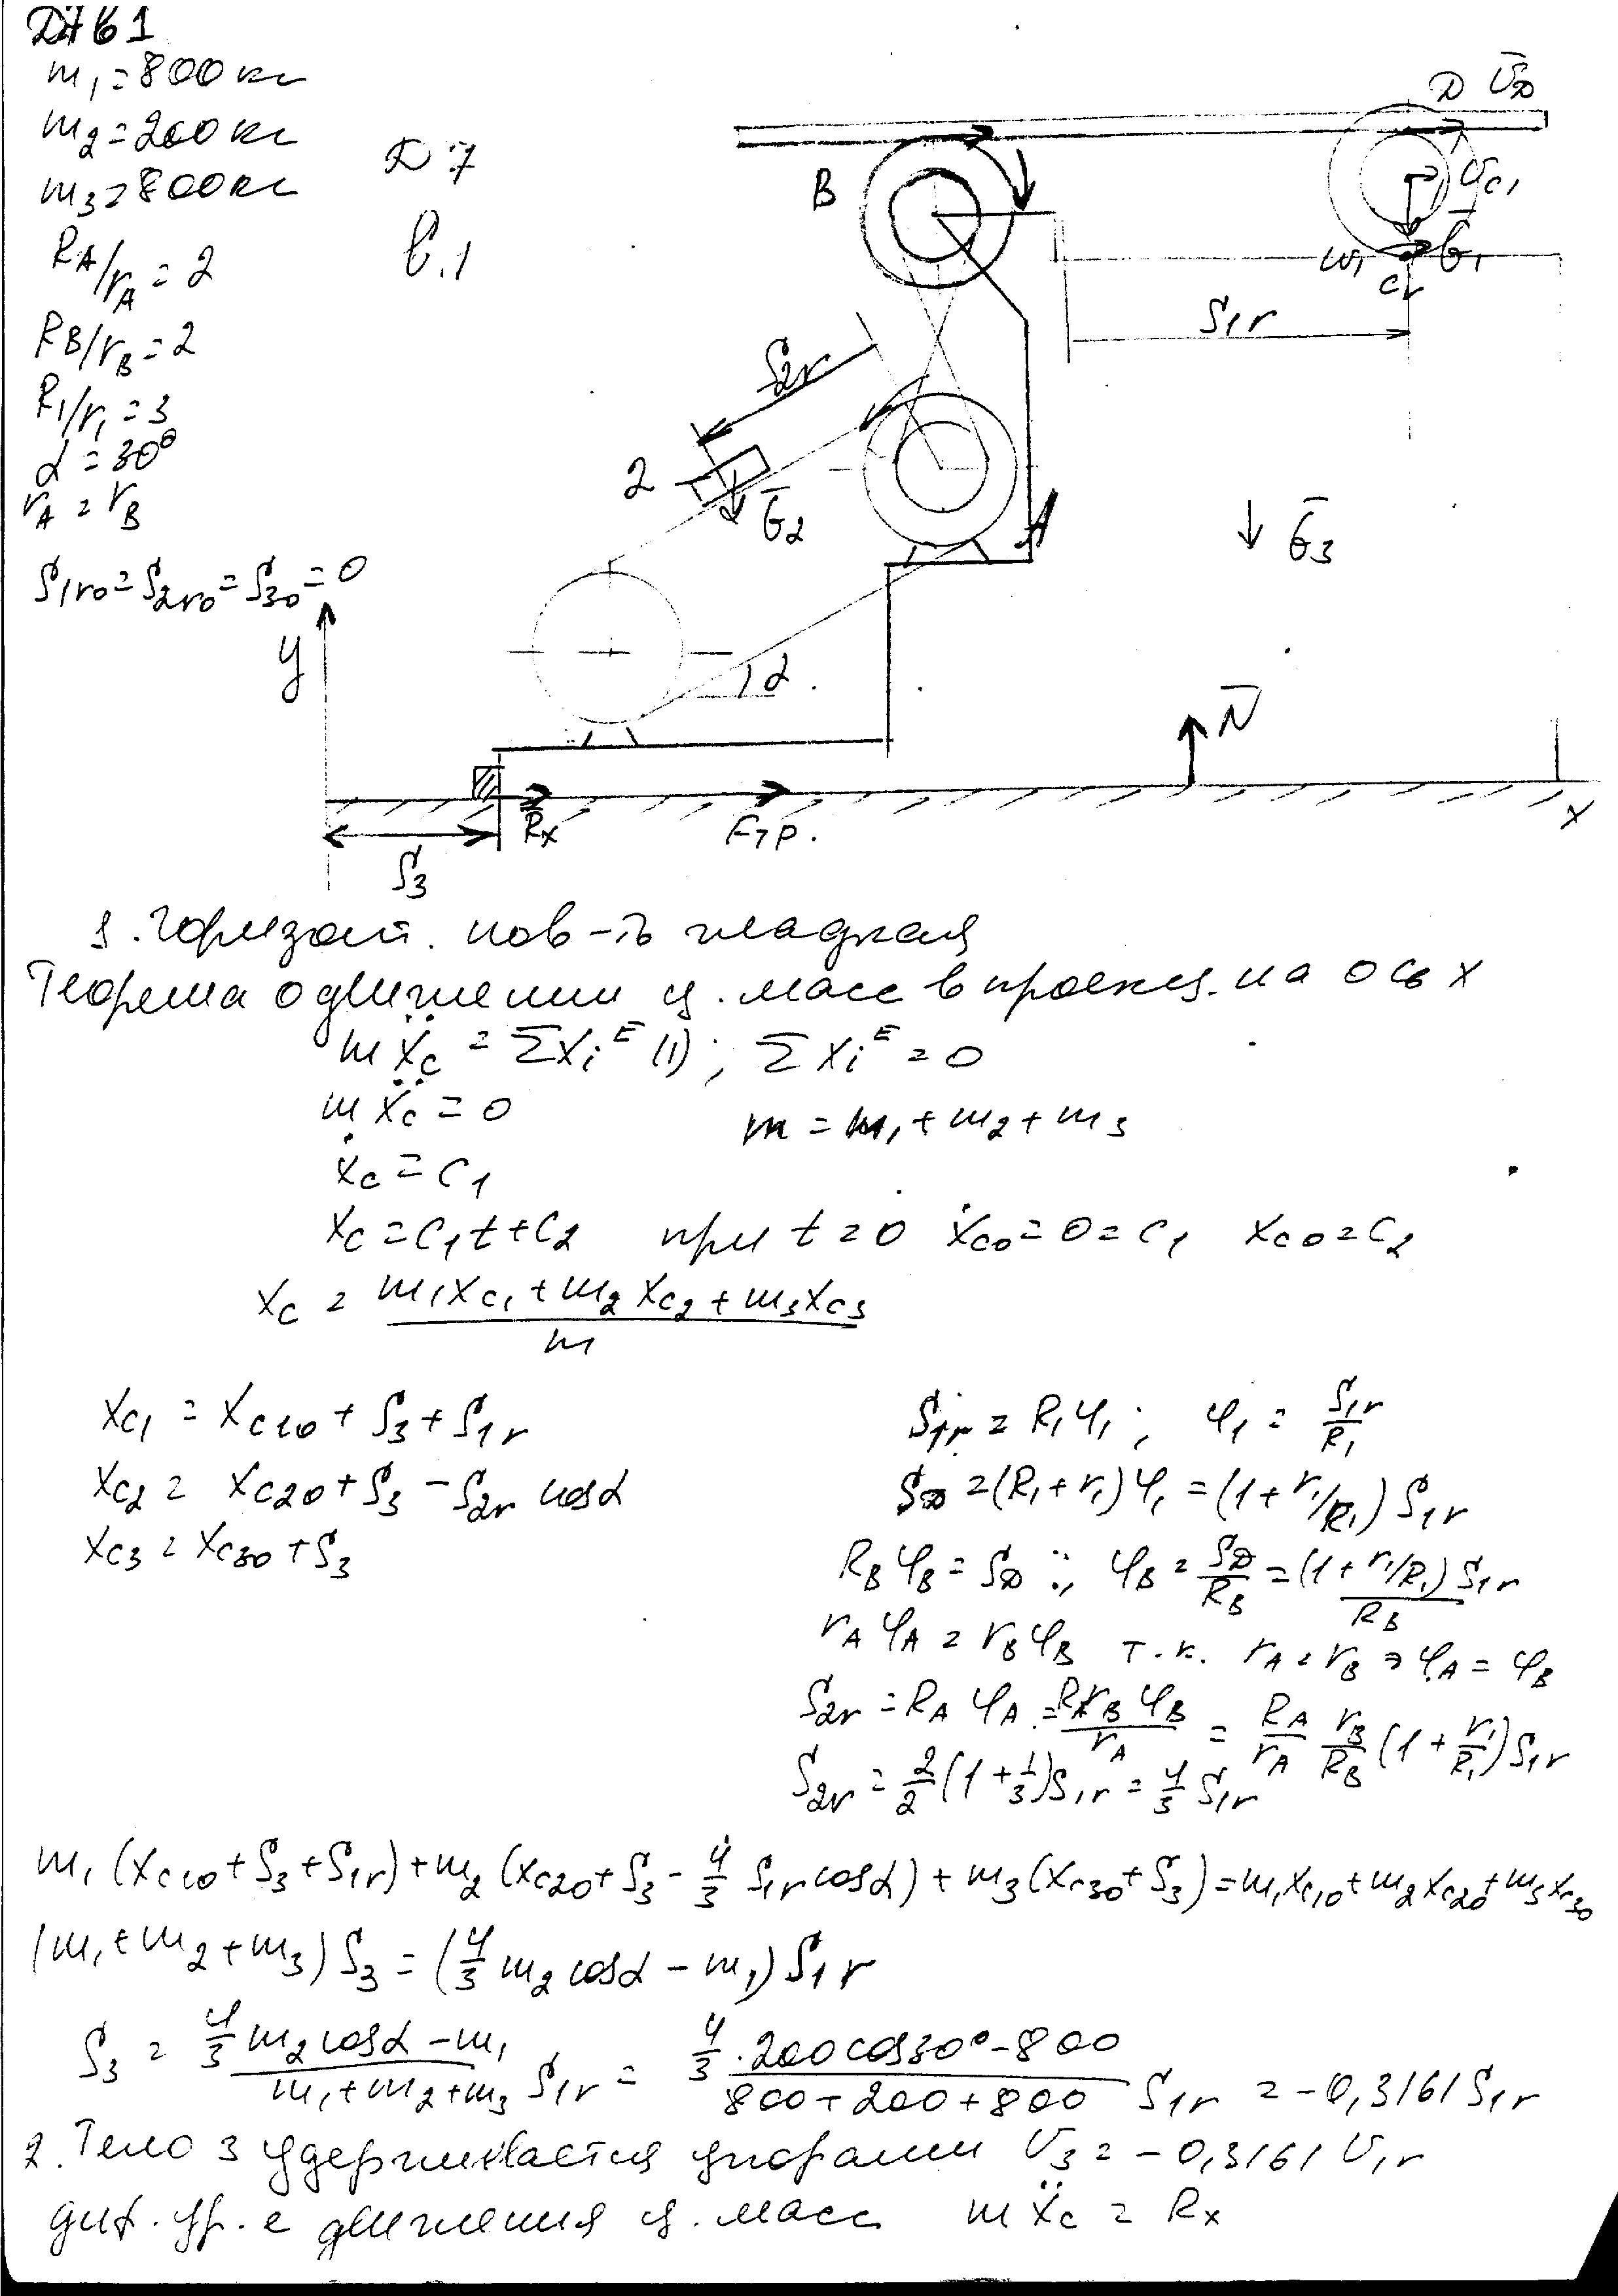 Д7 В1
m₁=800 кг
m₂=200 кг
m₃=800 кг
Д 7
В.1
R_A/r_A = 2
R_B/r_B = 2
R₁/r₁ = 3
α = 30°
r_A = r_B
S₁r₀ = S₂r₀ = S₃₀ = 0
D V̄_D
B
V̄_C₁
ω₁
Ḡ₁
C_v
S₁r
S₂r
2
Ḡ₂
A
Ḡ₃
y
α
N̄
R_x
Fтр.
x
S₃
1. Горизонт. пов-ть гладкая
Теорема о движении ц. масс в проекц. на ось x
mẍ_c = ΣX_i^E (1); ΣX_i^E = 0
mẍ_c = 0 m = m₁ + m₂ + m₃
ẋ_c = C₁
x_c = C₁t + C₂ при t = 0 ẋ_c₀ = 0 = C₁ x_c₀ = C₂
x_c = (m₁x_c₁ + m₂x_c₂ + m₃x_c₃)/m
x_c₁ = x_c₁₀ + S₃ + S₁r
x_c₂ = x_c₂₀ + S₃ − S₂r cosα
x_c₃ = x_c₃₀ + S₃
S₁r = R₁φ₁; φ₁ = S₁r/R₁
S_D = (R₁ + r₁)φ₁ = (1 + r₁/R₁) S₁r
R_Bφ_B = S_D; φ_B = S_D/R_B = (1 + r₁/R₁) S₁r/R_B
r_Aφ_A = r_Bφ_B т.к. r_A = r_B ⇒ φ_A = φ_B
S₂r = R_Aφ_A = R_A r_B φ_B/r_A = R_A/r_A r_B/R_B (1 + r₁/R₁) S₁r
S₂r = 2/2 (1 + 1/3) S₁r = 4/3 S₁r
m₁(x_c₁₀ + S₃ + S₁r) + m₂(x_c₂₀ + S₃ − 4/3 S₁r cosα) + m₃(x_c₃₀ + S₃) = m₁x_c₁₀ + m₂x_c₂₀ + m₃x_c₃₀
(m₁ + m₂ + m₃) S₃ = (4/3 m₂ cosα − m₁) S₁r
S₃ = (4/3 m₂ cosα − m₁)/(m₁ + m₂ + m₃) S₁r = (4/3 · 200 cos30° − 800)/(800 + 200 + 800) S₁r = −0,3161 S₁r
2. Тело 3 удерживается упорами V₃ = −0,3161 V₁r
диф. ур. е движения ц. масс mẍ_c = R_x